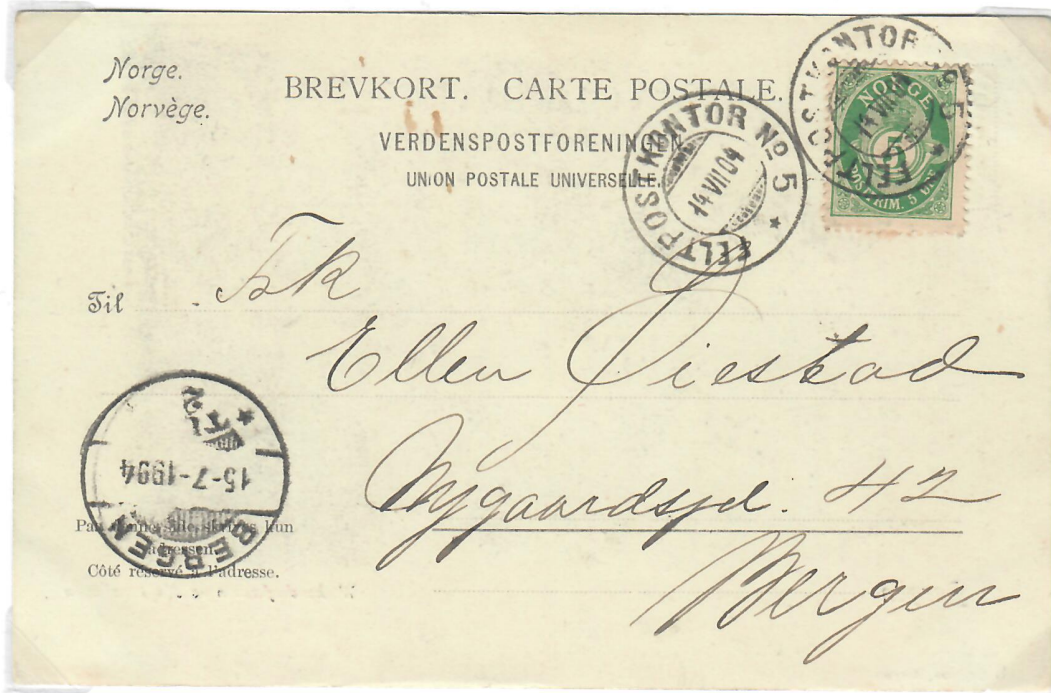 Norge.
Norvège.
BREVKORT. CARTE POSTALE.
VERDENSPOSTFORENINGEN
UNION POSTALE UNIVERSELLE.
FELTPOSTKONTOR No 5
14 VII 04
FELTPOSTKONTOR No 5
14 VII 04
NORGE
5
POSTFRIM. 5 ØRE
Til
Frk
Ellen Øiestad
Nygaardsgd. 42
Bergen
BERGEN
15-7-1904
Paa denne side skrives kun
adressen.
Côté réservé à l'adresse.